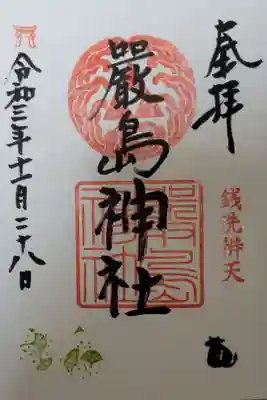 奉拝
銭洗辨天
嚴島神社
嚴島神社
令和三年十一月二十八日